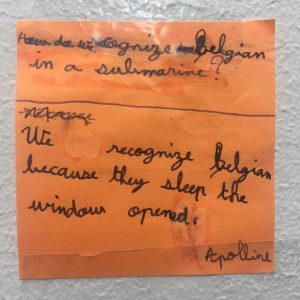 How do we recognize belgian
in a submarine?
We recognize belgian
because they sleep the
window opened.
Apolline